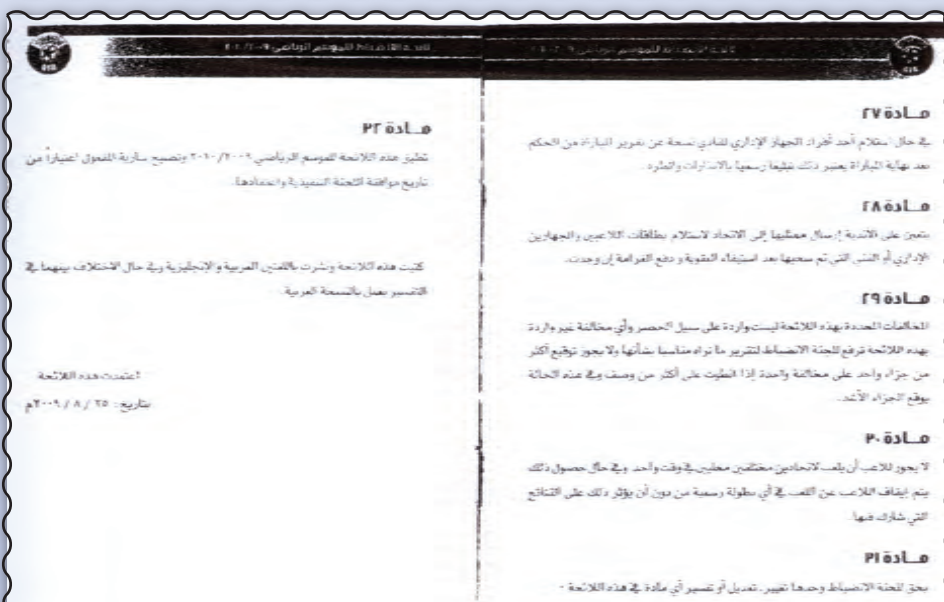 لائحة الانضباط للموسم الرياضي ٢٠٠٩-٢٠١٠
مــادة ٢٧
في حال استلام أحد أفراد الجهاز الإداري للنادي نسخة عن تقرير المباراة من الحكم
بعد نهاية المباراة يعتبر ذلك تبليغا رسميا بالانذارات والطرد.
مــادة ٢٨
يتعين على الأندية إرسال ممثليها إلى الاتحاد لاستلام بطاقات اللاعبين والجهازين
الإداري أو الفني التي تم سحبها بعد استيفاء العقوبة و دفع الغرامة إن وجدت.
مــادة ٢٩
المخالفات المحددة بهذه اللائحة ليست واردة على سبيل الحصر وأي مخالفة غير واردة
بهذه اللائحة ترفع للجنة الانضباط لتقرير ما تراه مناسبا بشأنها ولا يجوز توقيع أكثر
من جزاء واحد على مخالفة واحدة إذا انطبق على أكثر من وصف وفي هذه الحالة
يوقع الجزاء الأشد.
مــادة ٣٠
لا يجوز للاعب أن يلعب لاتحادين مختلفين محليين في وقت واحد وفي حال حصول ذلك
يتم إيقاف اللاعب عن اللعب في أي بطولة رسمية من دون أن يؤثر ذلك على النتائج
التي شارك فيها.
مــادة ٣١
يحق للجنة الانضباط وحدها تغيير، تعديل أو تفسير أي مادة في هذه اللائحة .
لائحة الانضباط للموسم الرياضي ٢٠٠٩-٢٠١٠
مــادة ٣٢
تطبق هذه اللائحة للموسم الرياضي ٢٠٠٩/٢٠١٠ وتصبح سارية المفعول اعتباراً من
تاريخ موافقة اللجنة التنفيذية واعتمادها.
كتبت هذه اللائحة ونشرت باللغتين العربية والإنجليزية وفي حال الاختلاف بينهما في
التفسير يعمل بالنسخة العربية.
اعتمدت هذه اللائحة
بتاريخ: ٢٥ / ٨ / ٢٠٠٩م